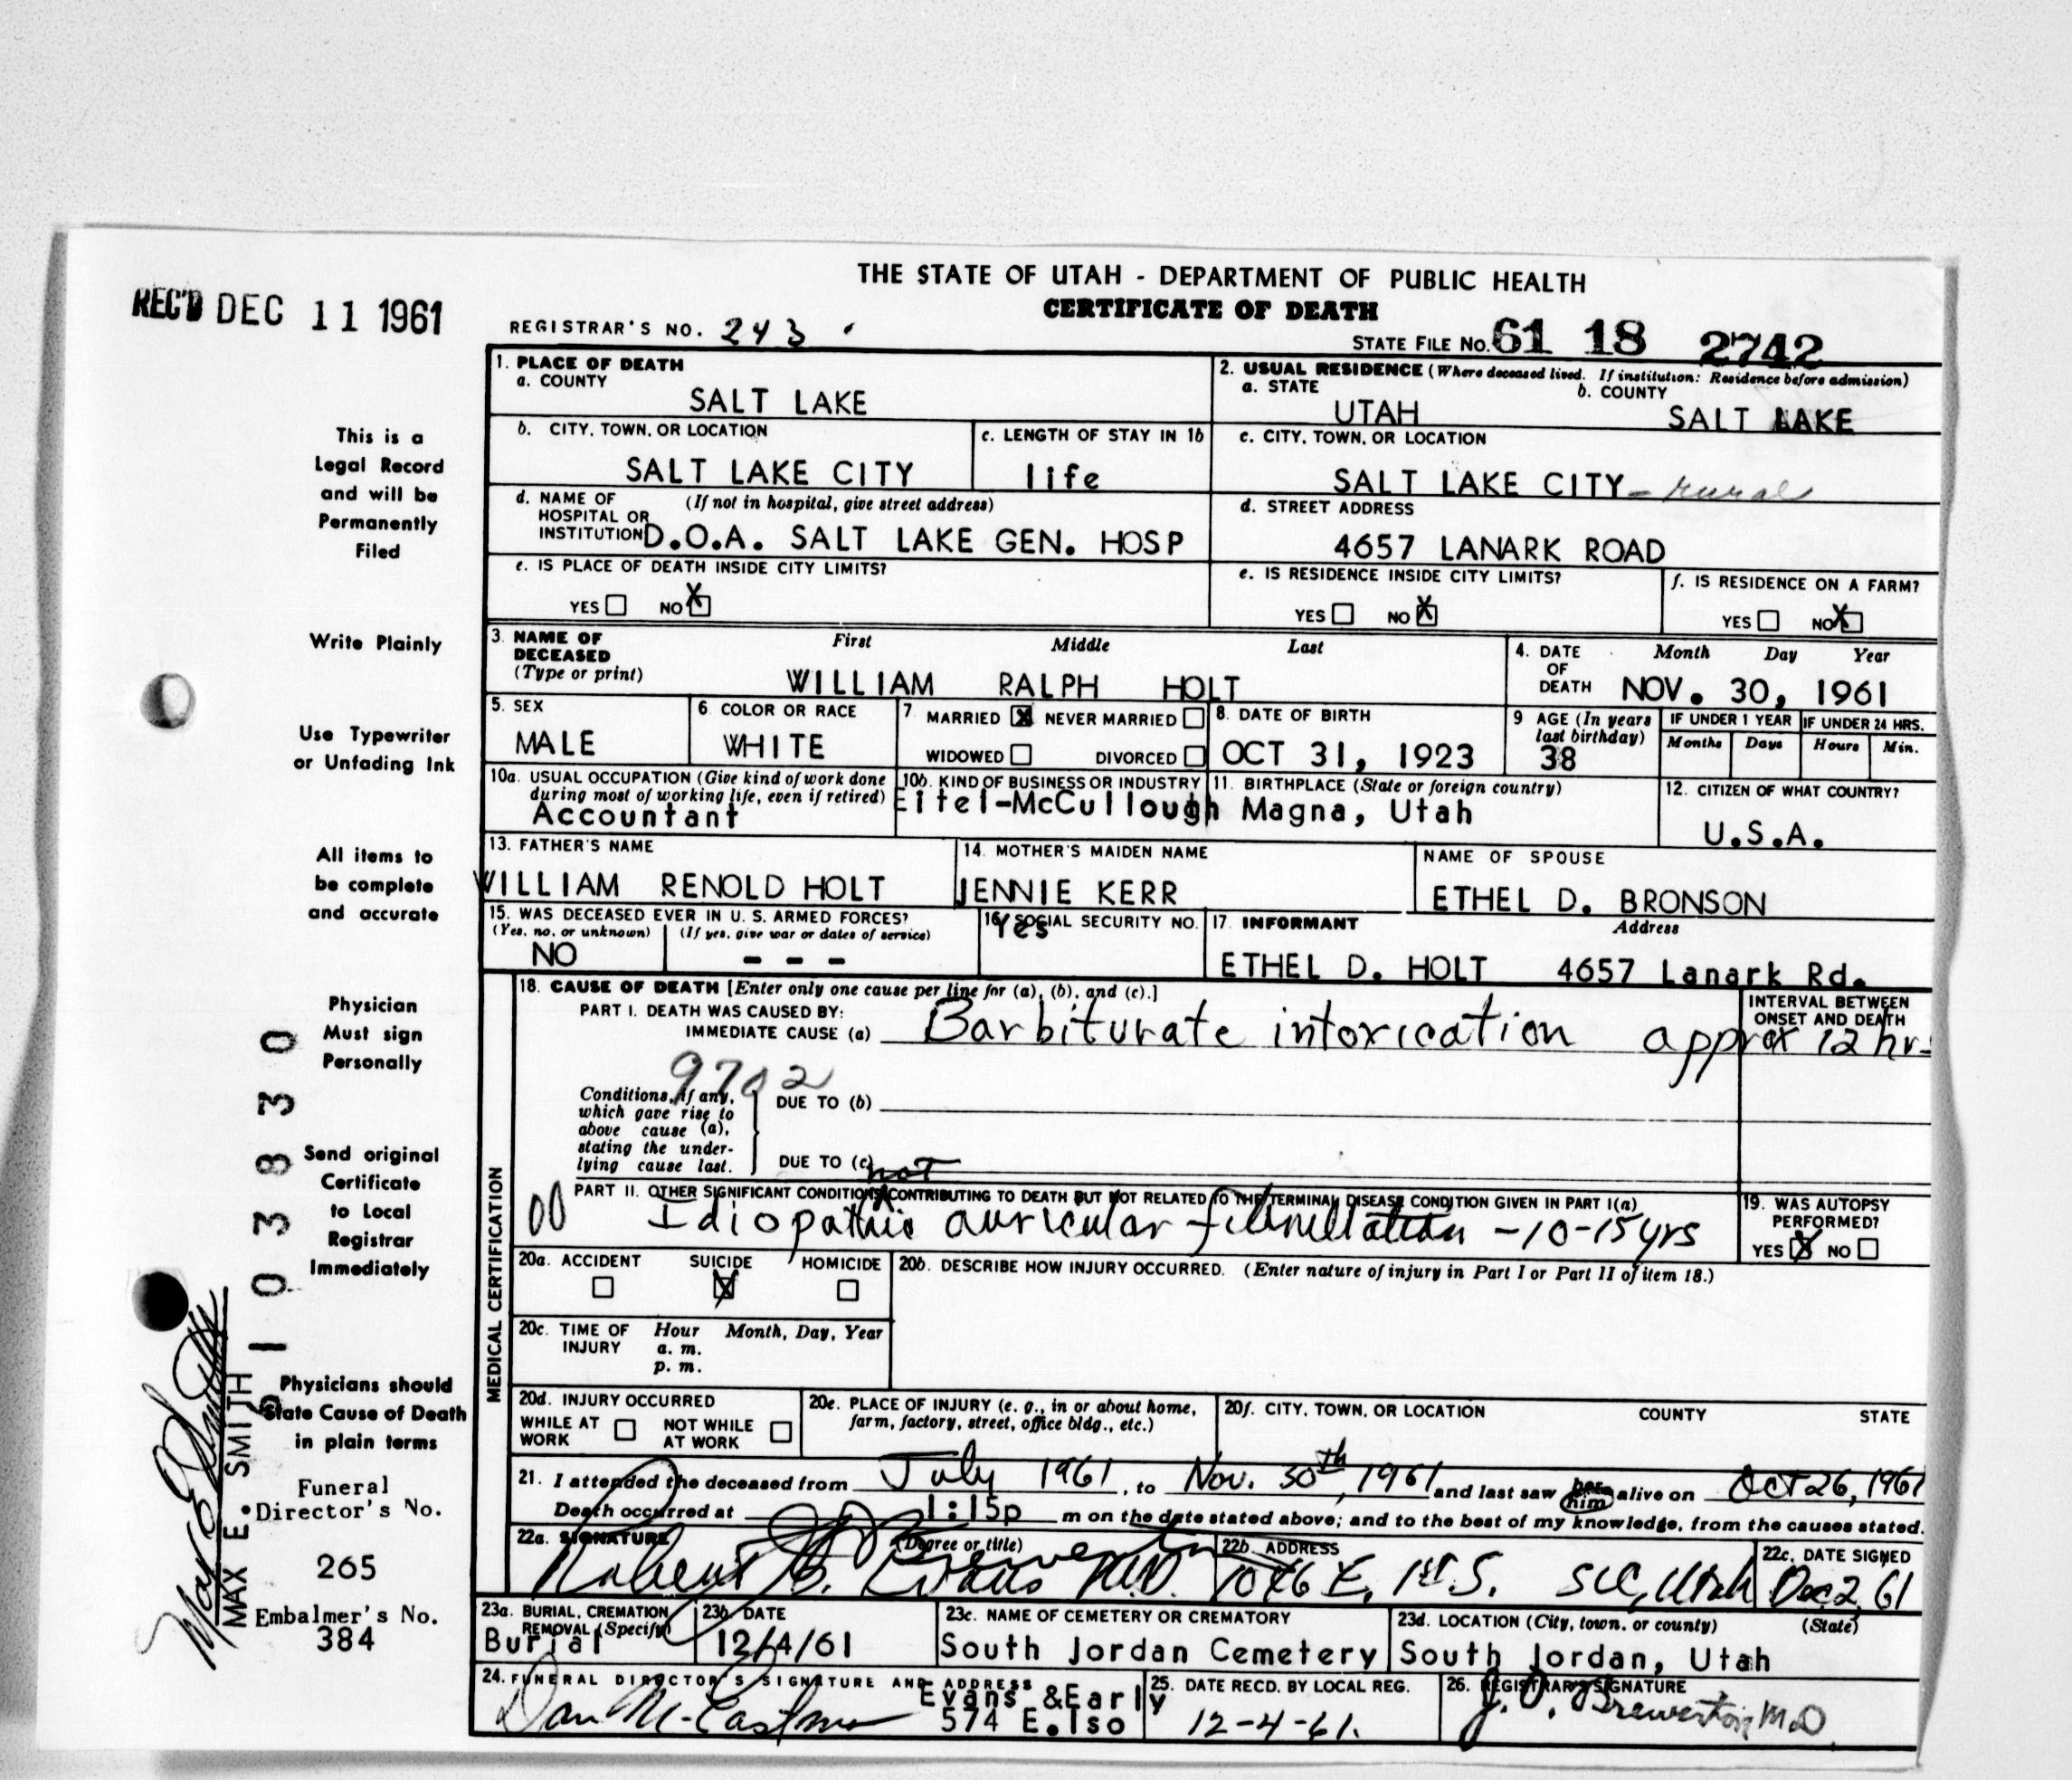 THE STATE OF UTAH - DEPARTMENT OF PUBLIC HEALTH
CERTIFICATE OF DEATH
REC'D DEC 11 1961
REGISTRAR'S NO. 243
STATE FILE No. 61 18 2742
1. PLACE OF DEATH
a. COUNTY
SALT LAKE
2. USUAL RESIDENCE (Where deceased lived. If institution: Residence before admission)
a. STATE
UTAH
b. COUNTY
SALT LAKE
b. CITY, TOWN, OR LOCATION
SALT LAKE CITY
c. LENGTH OF STAY IN 1b
life
c. CITY, TOWN, OR LOCATION
SALT LAKE CITY - rural
d. NAME OF HOSPITAL OR INSTITUTION (If not in hospital, give street address)
D.O.A. SALT LAKE GEN. HOSP
d. STREET ADDRESS
4657 LANARK ROAD
e. IS PLACE OF DEATH INSIDE CITY LIMITS?
YES NO X
e. IS RESIDENCE INSIDE CITY LIMITS?
YES NO X
f. IS RESIDENCE ON A FARM?
YES NO X
3. NAME OF DECEASED (Type or print)
First Middle Last
WILLIAM RALPH HOLT
4. DATE OF DEATH
Month Day Year
NOV. 30, 1961
5. SEX
MALE
6. COLOR OR RACE
WHITE
7. MARRIED X NEVER MARRIED
WIDOWED DIVORCED
8. DATE OF BIRTH
OCT 31, 1923
9 AGE (In years last birthday)
38
IF UNDER 1 YEAR
Months Days
IF UNDER 24 HRS.
Hours Min.
10a. USUAL OCCUPATION (Give kind of work done during most of working life, even if retired)
Accountant
10b. KIND OF BUSINESS OR INDUSTRY
Eitel-McCullough
11. BIRTHPLACE (State or foreign country)
Magna, Utah
12. CITIZEN OF WHAT COUNTRY?
U.S.A.
13. FATHER'S NAME
WILLIAM RENOLD HOLT
14. MOTHER'S MAIDEN NAME
JENNIE KERR
NAME OF SPOUSE
ETHEL D. BRONSON
15. WAS DECEASED EVER IN U. S. ARMED FORCES?
(Yes, no, or unknown) (If yes, give war or dates of service)
NO - - -
16. SOCIAL SECURITY NO.
Yes
17. INFORMANT Address
ETHEL D. HOLT 4657 Lanark Rd.
MEDICAL CERTIFICATION
18. CAUSE OF DEATH [Enter only one cause per line for (a), (b), and (c).]
PART I. DEATH WAS CAUSED BY:
IMMEDIATE CAUSE (a) Barbiturate intoxication
INTERVAL BETWEEN ONSET AND DEATH
approx 12 hrs
9702
Conditions, if any, which gave rise to above cause (a), stating the underlying cause last.
DUE TO (b)
DUE TO (c)
not
PART II. OTHER SIGNIFICANT CONDITIONS CONTRIBUTING TO DEATH BUT NOT RELATED TO THE TERMINAL DISEASE CONDITION GIVEN IN PART I(a)
00 Idiopathic auricular fibrillation - 10-15 yrs
19. WAS AUTOPSY PERFORMED?
YES X NO
20a. ACCIDENT SUICIDE X HOMICIDE
20b. DESCRIBE HOW INJURY OCCURRED. (Enter nature of injury in Part I or Part II of item 18.)
20c. TIME OF INJURY Hour Month, Day, Year
a. m.
p. m.
20d. INJURY OCCURRED
WHILE AT WORK NOT WHILE AT WORK
20e. PLACE OF INJURY (e. g., in or about home, farm, factory, street, office bldg., etc.)
20f. CITY, TOWN, OR LOCATION COUNTY STATE
21. I attended the deceased from July 1961, to Nov. 30th, 1961 and last saw her him alive on Oct 26, 1961
Death occurred at 1:15p m on the date stated above; and to the best of my knowledge, from the causes stated.
22a. SIGNATURE (Degree or title)
Robert B. Evans M.D.
22b. ADDRESS
1046 E. 1st S. SLC, Utah
22c. DATE SIGNED
Dec 2, 61
23a. BURIAL, CREMATION REMOVAL (Specify)
Burial
23b. DATE
12/4/61
23c. NAME OF CEMETERY OR CREMATORY
South Jordan Cemetery
23d. LOCATION (City, town, or county) (State)
South Jordan, Utah
24. FUNERAL DIRECTOR'S SIGNATURE AND ADDRESS
Evans & Early
574 E. 1so
25. DATE RECD. BY LOCAL REG.
12-4-61.
26. REGISTRAR'S SIGNATURE
J. D. Brewerton, M.D.
This is a
Legal Record
and will be
Permanently
Filed
Write Plainly
Use Typewriter
or Unfading Ink
All items to
be complete
and accurate
Physician
Must sign
Personally
Send original
Certificate
to Local
Registrar
Immediately
Physicians should
State Cause of Death
in plain terms
Funeral
Director's No.
265
Embalmer's No.
384
6103830
Max E Smith
MAX E. SMITH